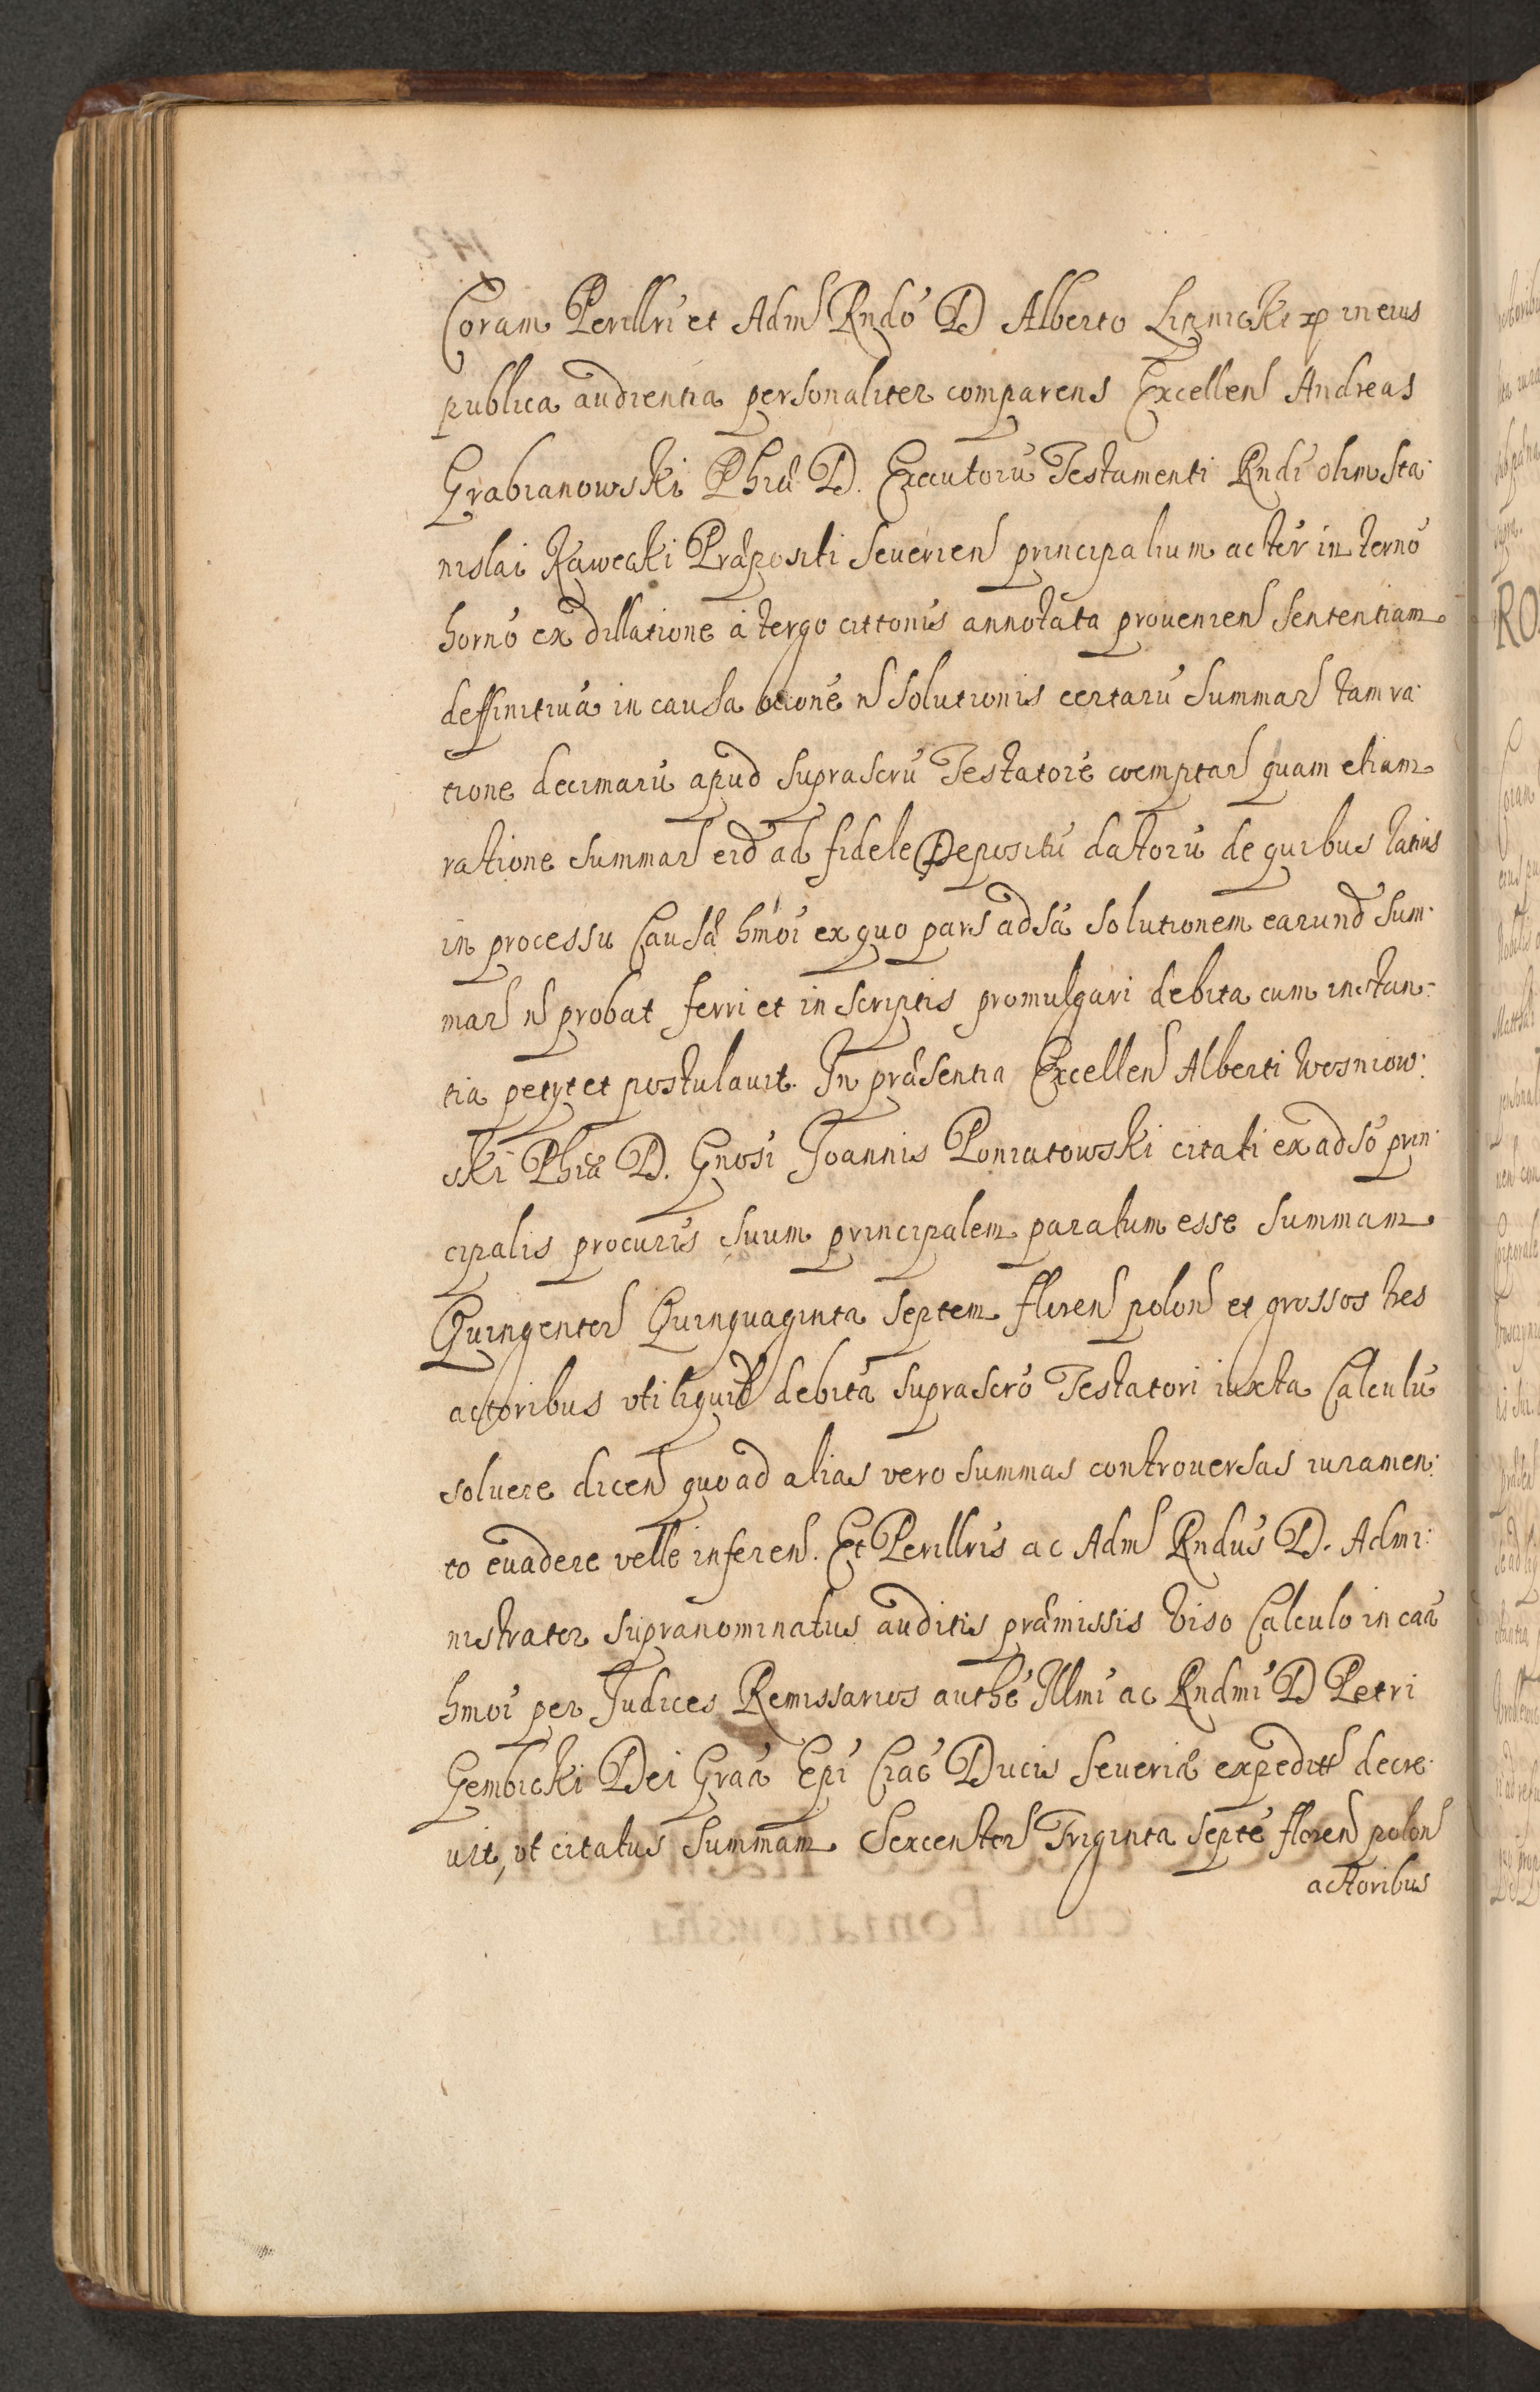 Coram Perillri et Adm Rndo D Alberto Lipnicki xp in eius
publica audientia personaliter comparens Excellen Andreas
Grabianowski Phiæ D. Executorũ Testamenti Rndi olim Sta:
nislai Kawecki Præpositi Seuerien principalium actér in termõ
horno ex dillatione à tergo cittonis annotata prouenien Sententiam
deffinitiuã in causa õcione n Solutionis certarũ Summar tam ra:
tione decimarũ apud suprascrũ Testatorẽ coemptar quam etiam
ratione summar eid ad fidele Depositũ datorũ de quibus latius
in processu Causæ hmoi ex quo pars adsa solutionem earund Sum:
mar n probat ferri et in scriptis promulgari debita cum instan:
tia petyt et postulauit. In præsentia Excellen Alberti Wosniow:
ski Phiæ D. Gnosi Joannis Poniatowski citati ex adso prin:
cipalis procuris suum principalem paratum esse summam
Quingentor Quinquaginta Septem floren polon et grossos tres
actoribus vti liquid debitã suprascro Testatori iuxta Calculũ
soluere dicen quoad alias vero summas controuersas iuramen:
to euadere velle inferen. Et Perillris ac Adm Rndus D. Admi:
nistrator supranominatus auditis præmissis viso Calculo in caa
hmoi per Judices Remissarios authe Illmi ac Rndmi D Petri
Gembicki Dei Graa Epi Crac Ducis Seueriæ expeditt decre:
uit, vt citatus Summam Sexcentor Triginta septẽ floren polon
actoribus